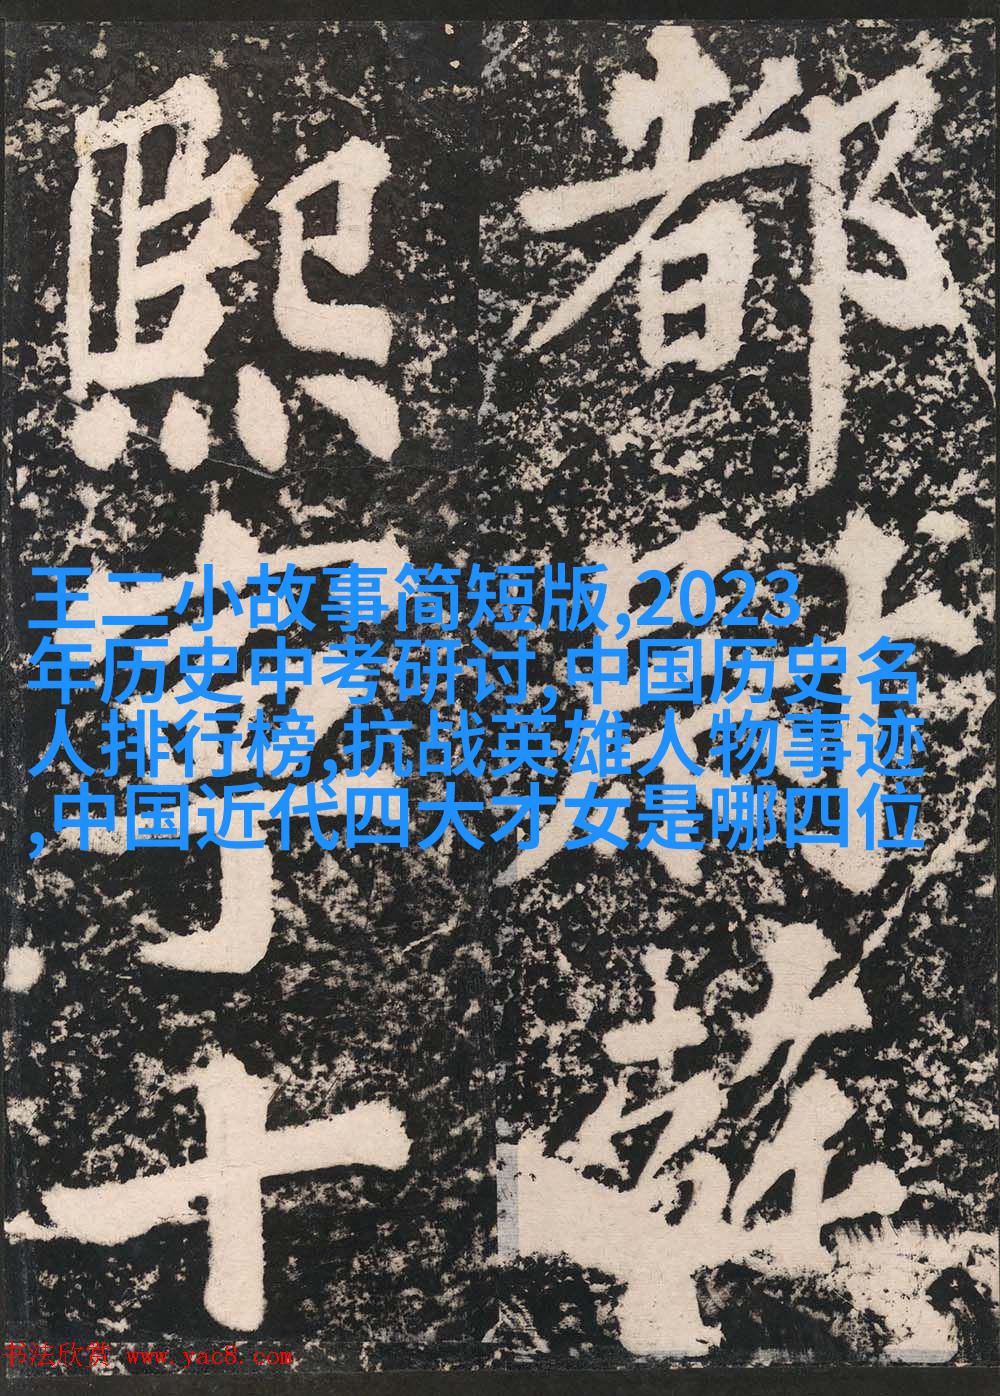 都
熙
十
王二小故事简短版,2023
年历史中考研讨,中国历史名
人排行榜,抗战英雄人物事迹
,中国近代四大才女是哪四位
书法欣赏 www.yac8.com